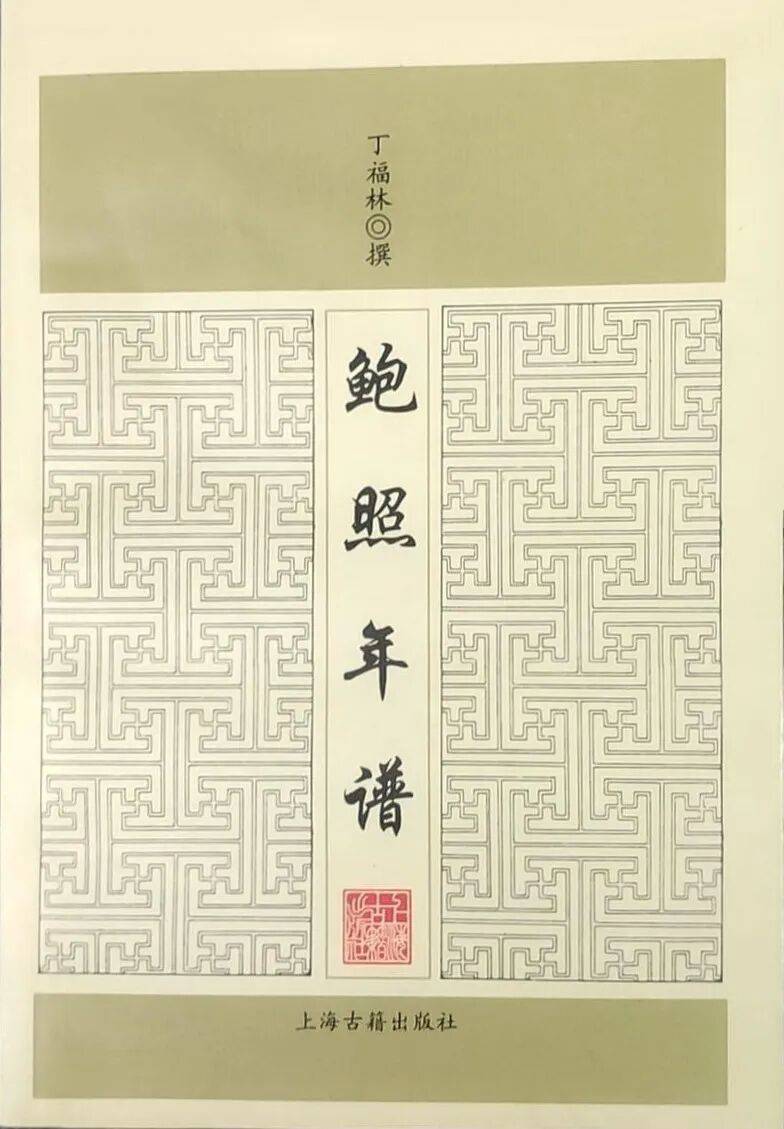 丁福林◎撰
鲍照年谱
上海古籍出版社